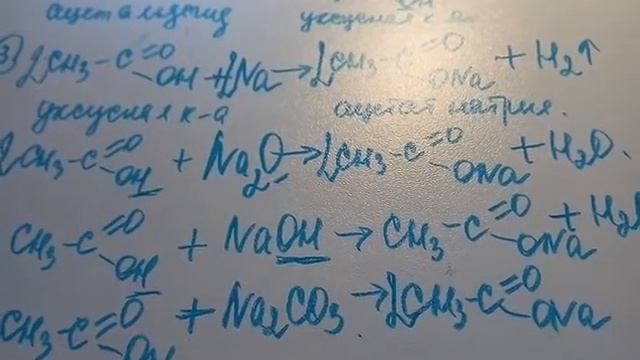 ацетальдегид уксусная к-а
3) 2CH3-C=O OH + 2Na → 2CH3-C=O ONa + H2↑
уксусная к-а ацетат натрия.
2CH3-C=O OH + Na2O → 2CH3-C=O ONa + H2O.
CH3-C=O OH + NaOH → CH3-C=O ONa + H2
CH3-C=O OH + Na2CO3 → 2CH3-C=O ONa